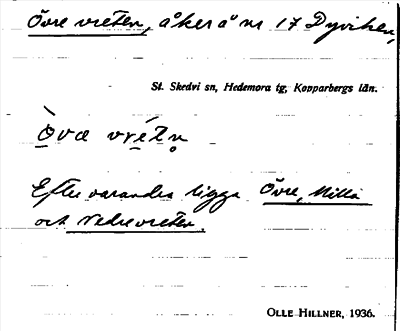 Övre vreten, åker å nr 17 Dyviken,
St. Skedvi sn, Hedemora tg, Kopparbergs län.
Efter varandra ligga Övre, Mella
och Nedrevreten.
OLLE HILLNER, 1936.